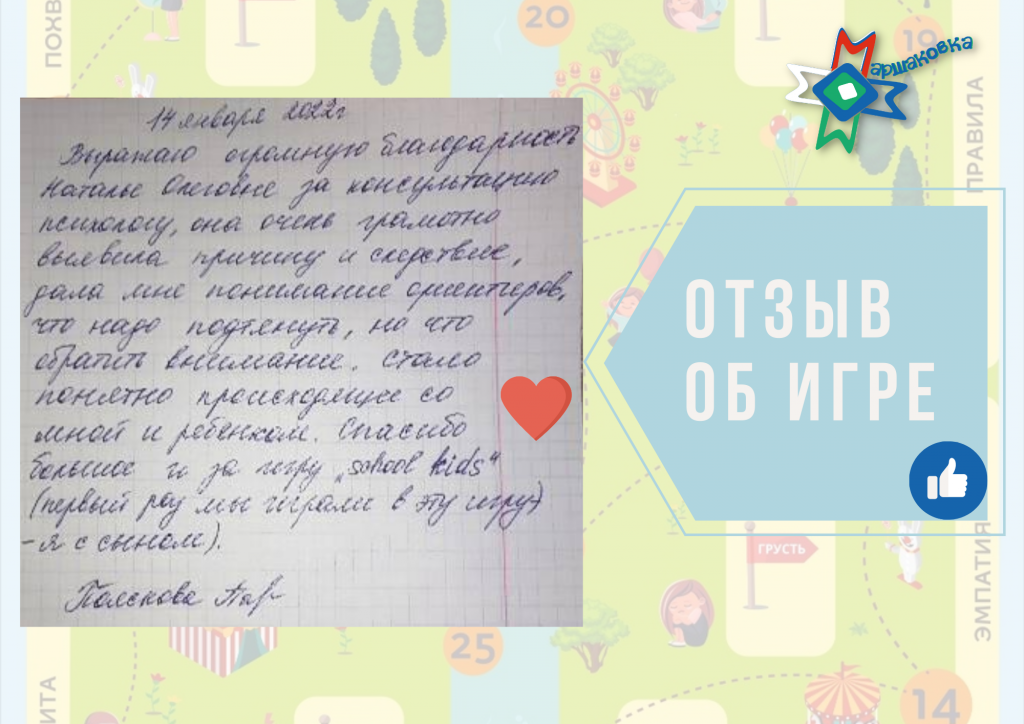 ПОХВ
20
19
аршаковка
ПРАВИЛА
14 января 2022г
Выражаю огромную благодарность
Наталье Олеговне за консультацию
психологу, она очень грамотно
выявила причину и следствие,
дала мне понимание ориентиров,
что надо подтянуть, на что
обратить внимание. Стало
понятно происходящее со
мной и ребенком. Спасибо
большое и за игру „school kids“
(первый раз мы играли в эту игру)
- я с сыном).
ОТЗЫВ
ОБ ИГРЕ
ГРУСТЬ
ЭМПАТИЯ
25
ИТА
14